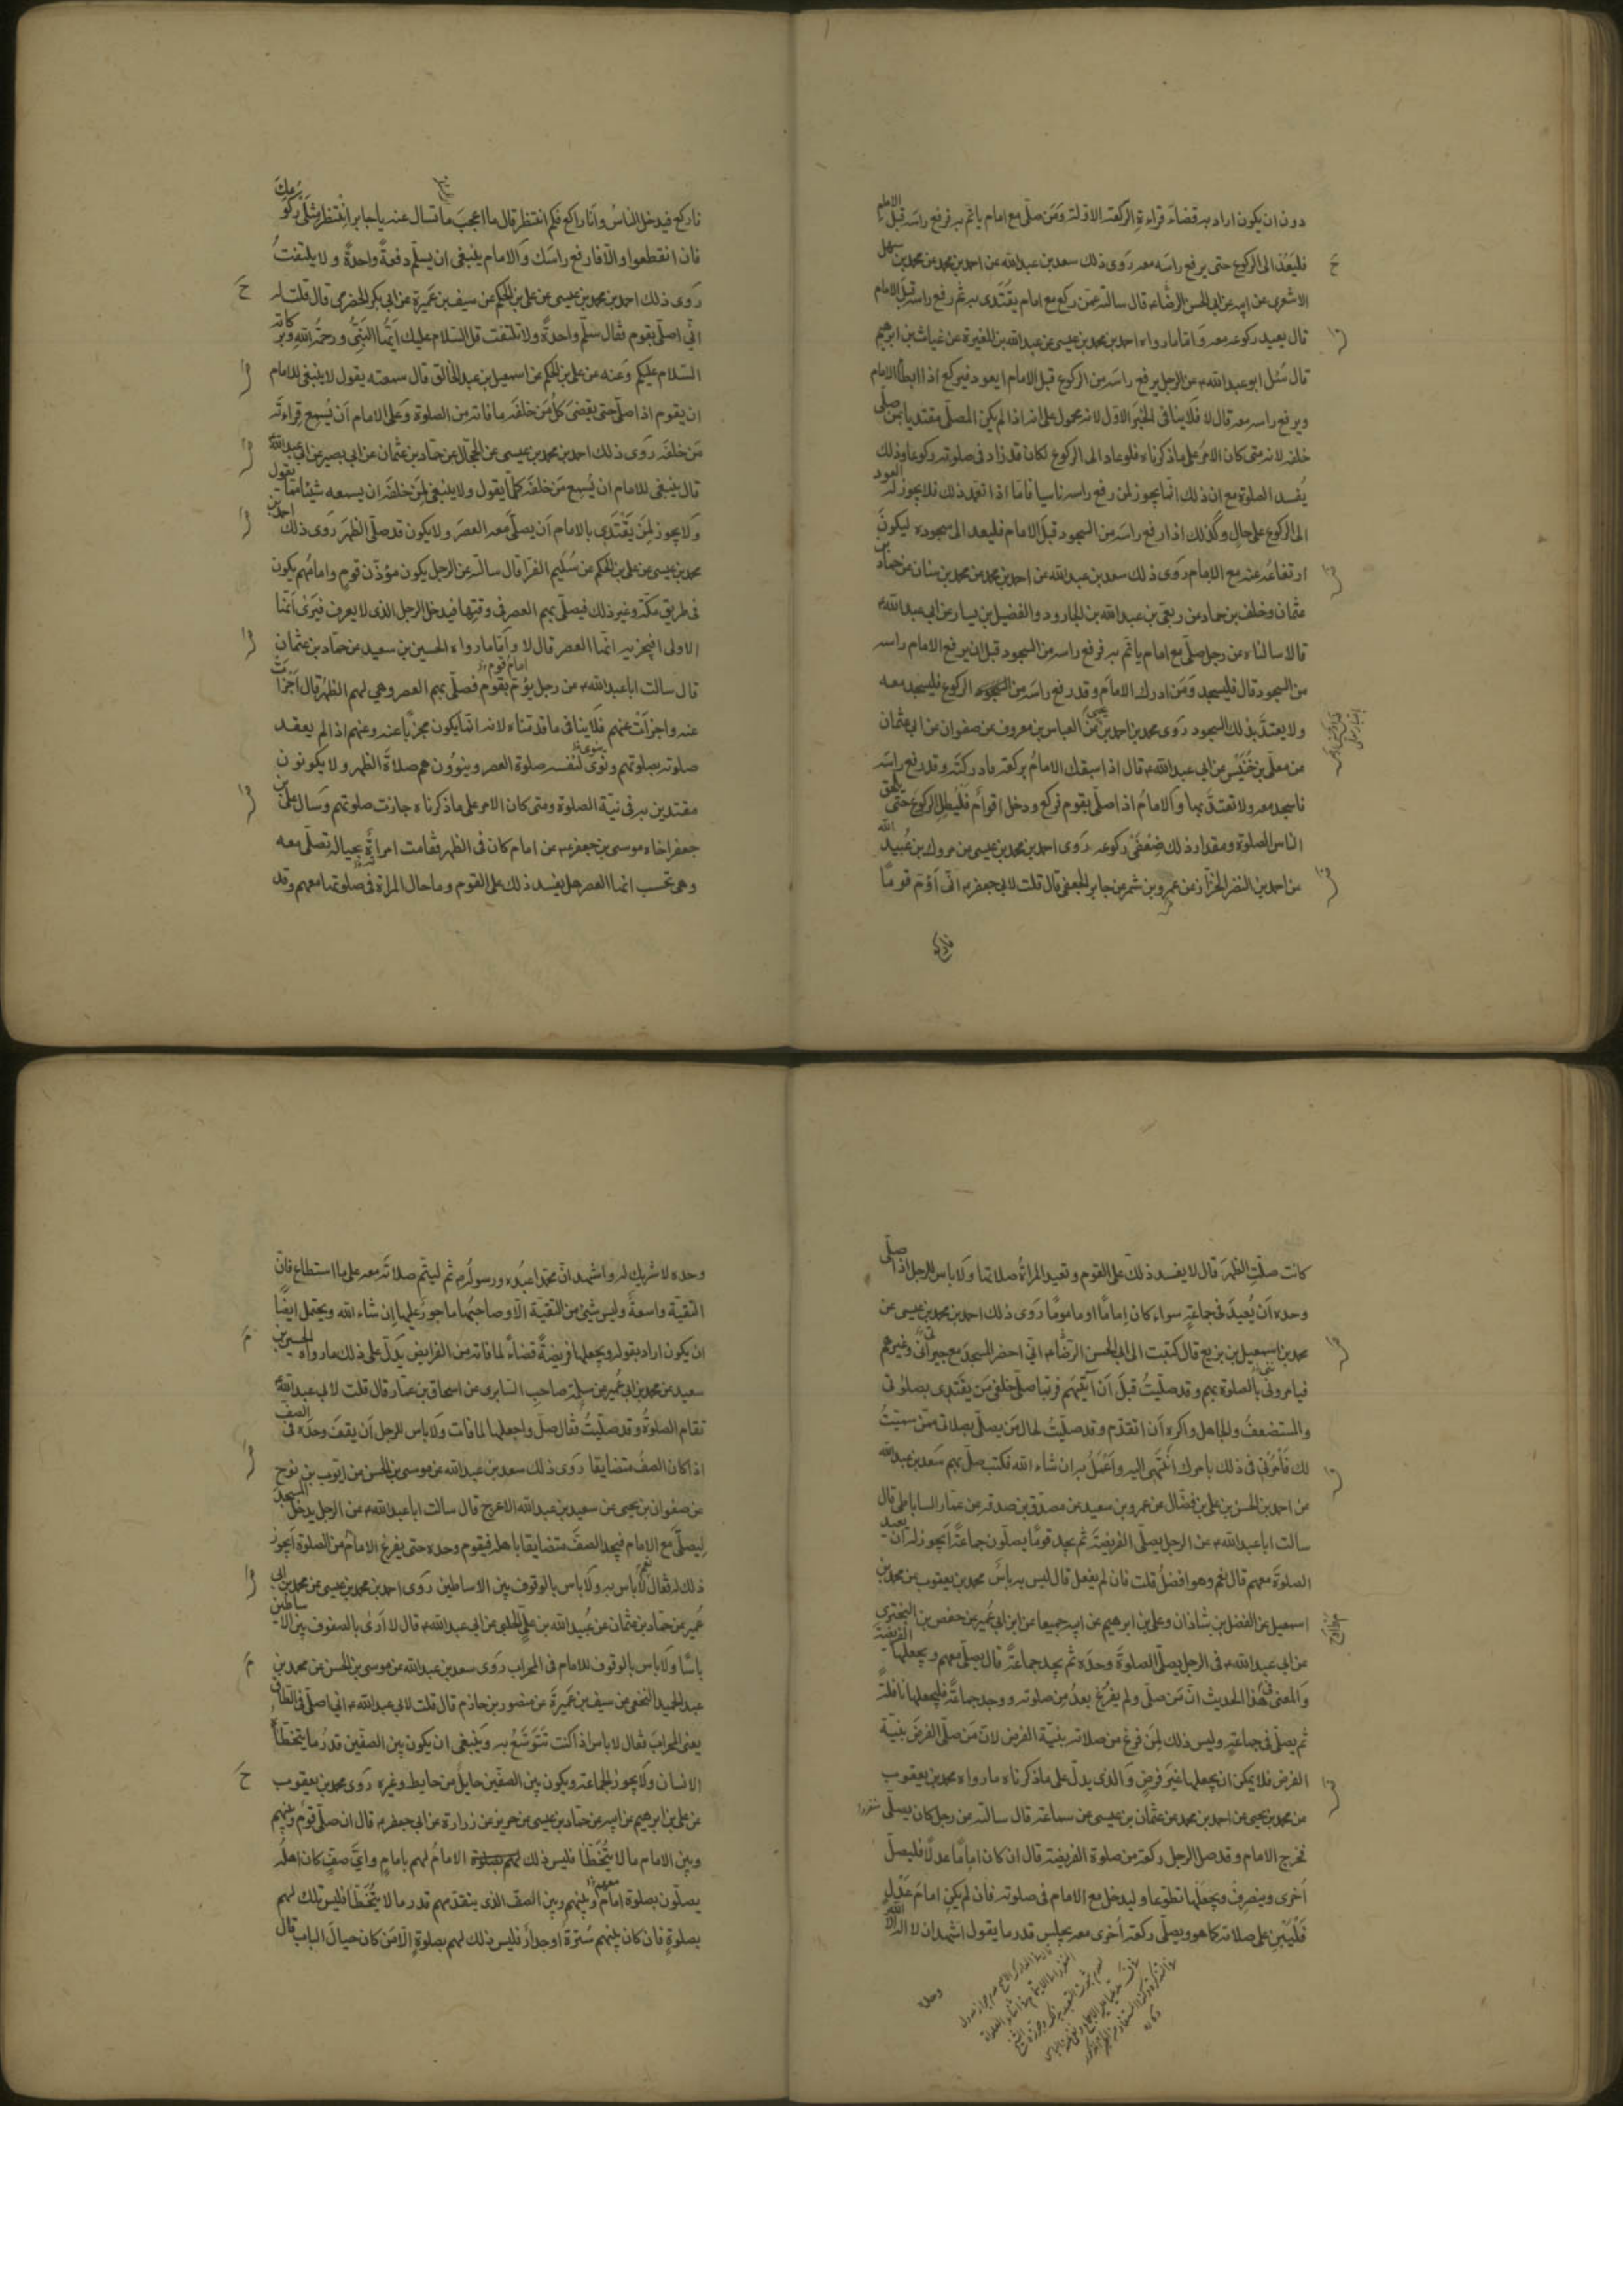 دون ان يكون اراد به قضاء قراءة الركعة الاولة وَمَن صلّى مع امام يأتمّ به فرفع راسَه قبل الامام
فليَعُد الى الركوع حتى يرفع راسَه معه رَوى ذلك سعد بن عبدالله عن احمد بن محمد عن محمد بن سهل
الاشعرى عن ابيه عن ابى الحسن الرضاء قال سالته عمّن ركع مع امام يقتَدى به ثم رفع راسه قبل الامام
قال يعيد ركوعه معه وَاما ما رواه احمد بن محمد بن عيسى عن عبدالله بن المغيرة عن غياث بن ابرهيم
قال سُئل ابو عبدالله ع عن الرجل يرفع راسَه من الركوع قبل الامام ايعود فيركع اذا ابطأ الامام
ويرفع راسه معه قال لا فلا ينافى الخبَر الاوّل لانه محمول على انه اذا لم يكن المصلّى مقتديا بمن صلّى
خلفه لانه متى كان الامرُ على ما ذكرناه فلو عاد الى الركوع لكان قد زاد فى صلوته ركوعا وذلك
يُفسد الصلوة مع ان ذلك انّما يجوز لمن رفع راسه ناسيا فاما اذا تعمّد ذلك فلا يجوز له العود
الى الركوع على حال وكذلك اذا رفع راسَه من السجود قبلَ الامام فليعد الى سجوده ليكونَ
ارتفاعُه عنه مع الامام رَوى ذلك سعد بن عبدالله عن احمد بن محمد عن محمد بن سنان عن حماد بن
عثمان وخلف بن حماد عن ربعى بن عبدالله بن الجارود والفضيل بن يسار عن ابى عبدالله ع
قالا سالناه عن رجل صلّى مع امام ياتّم به فرفع راسه من السجود قبل ان يرفع الامام راسه
من السجود قال فليسجد وَمَن ادرك الامامَ وقد رفع راسَه من الركوع فليسجد معه
ولا يعتدَّ بذلك السجود رَوى محمد بن احمد بن يحيى عن العباس بن معروف عن صفوان عن ابى عثمان
عن معلّى بن خُنَيْس عن ابى عبدالله ع قال اذا سبقك الامامُ بركعة فادركتَه وقد رفع راسَه
فاسجد معه ولا تعتدَّ بها وَالامامُ اذا صلّى بقوم فركع ودخل اقوامٌ فَليُطل الركوعَ حتى يلحق
الناس الصلوة ومقدار ذلك ضِعْفَىْ ركوعه رَوى احمد بن محمد بن عيسى عن مروك بن عُبيد الله
عن احمد بن النضر الخزّاز عن عمرو بن شمر عن جابر الجعفى قال قلت لابى جعفر ع انّى اَؤمّ قومًا
فاركع
فاركع فيدخل الناسُ وأنا راكع فكم انتظر قال ما اعجبَ ما تسال عنه يا جابر انتظر مِثلَىْ ركوعك
فان انقطعوا والّا فارفع راسَك وَالامام ينبغى ان يسلّم دفعةً واحدةً ولا يلتفتُ
رَوى ذلك احمد بن محمد بن عيسى عن على بن الحكم عن سيف بن عَميرة عن ابى بكر الحضرمى قال قلت له
انّى اصلّى بقوم فقال سلّم واحدةً ولا تلتفت قل السّلام عليك ايّها النبىُّ ورحمة الله وبركاته
السّلام عليكم وَعنه عن على بن الحكم عن اسمعيل بن عبد الخالق قال سمعته يقول لا ينبغى للامام
ان يقوم اذا صلّى حتى يقضىَ كلُّ مَن خلفَه ما فاته من الصلوة وَعلى الامام اَن يُسمِع قِراءتَه
مَن خلفَه رَوى ذلك احمد بن محمد بن عيسى عن الحجّال عن حماد بن عثمان عن ابى بصير عن ابى عبدالله ع
قال ينبغى للامام ان يُسمِع مَن خلفَه كلّما يقول ولا ينبغى لمَن خلفَه ان يسمعه شيئا ممّا يقول
وَلا يجوز لمَن يَقتَدى بالامام اَن يصلّى معه العصرَ ولا يكون قد صلّى الظهرَ رَوى ذلك احمد بن
محمد بن عيسى عن على بن الحكم عن سُليم الفرّا قال سالته عن الرجل يكون مؤذّن قومٍ وامامَهُم يكون
فى طريق مكّة وغير ذلك فيصلّى بهم العصر فى وقتها فيدخل الرجل الذى لا يعرف فيَرى انّها
الاولى افيجزيه انّها العصر قال لا وَأمّا ما رواه الحسين بن سعيد عن حمّاد بن عثمان
قال سالت ابا عبدالله ع عن رجل يؤمّ بقوم امامُ قوم فصلّى بهم العصر وهى لهم الظهر قال اَجْزَأَت
عنه واجزأَتْ عنهم فَلا ينافى ما قدّمناه لانه انّما يكون مجزيًا عنه وعنهم اذا لم يعقد
صلوته بصلوتهم ونَوى ينوى لنفسه صلوة العصر وينوُون هم صلاةَ الظهر ولا يكونون
مقتدين به فى نيّة الصلوة ومتى كان الامر على ما ذكرناه جازت صلوتهم وَسال على بن
جعفر اخاه موسى بن جعفر ع عن امام كان فى الظهر فقامت امرأةٌ بحياله تصلّى معه
وهى تحسب انها العصر هل يفسد ذلك على القوم وما حال المراة فى صلوتها معهم وقد
كانت صلّتِ الظهرَ قال لا يفسد ذلك على القوم وتعيد المراةُ صلاتها وَلا باس للرجل اذا صلّى
وحده اَن يُعيدَ فى جماعةٍ سواء كان إمامًا او مامومًا رَوى ذلك احمد بن محمد بن عيسى عن
محمد بن اسمعيل بن بزيع قال كتبت الى ابى الحسن الرضا ع انّى احضر المسجدَ مع جيرانى وغيرهم
فيامرونى بالصلوة بهم وقد صلّيتُ قبل اَن آتيَهم فربّما صلّى خلفى مَن يقتَدى بصلوتى
والمستضعفُ والجاهل واكره اَن اتقدّم وقد صلّيت لحال مَن يصلّى بصلاتى ممّن سمّيتُ
لك فَأْمُرنى فى ذلك بامرك انتهى اليه واَعْمَلُ به ان شاء الله فكتب صلّ بهم سعد بن عبدالله
عن احمد بن الحسن بن على بن فضّال عن عمرو بن سعيد عن مصدّق بن صدقة عن عمّار الساباطى قال
سالت ابا عبدالله ع عن الرجل يصلّى الفريضة ثم يجد قومًا يصلّون جماعةً اَيجوز له ان يعيد
الصلوة معهم قال نعم وهو افضلُ قلت فان لم يفعل قال ليس به بأس محمد بن يعقوب عن محمد بن
اسمعيل عن الفضل بن شاذان وعلى بن ابرهيم عن ابيه جميعا عن ابن ابى عُمير عن حفص بن البخترى
عن ابى عبدالله ع فى الرجل يصلّى الصلوةَ وحدَه ثم يجد جماعةً قال يصلّى معهم ويجعلها الفريضة
وَالمعنى فى هذا الحديث انّ مَن صلّى ولم يفرُغ بعدُ مِن صلوته ووجد جماعةً فليجعلها نافلةً
ثم يصلّى فى جماعةٍ وليس ذلك لِمَن فرغ من صلاته بنيّة الفرض لانّ مَن صلّى الفرضَ بنيّة
الفرض فلا يمكن ان يجعلها غيرَ فرضٍ وَالّذى يدلّ على ما ذكرناه ما رواه محمد بن يعقوب
عن محمد بن يحيى عن احمد بن محمد عن عثمان بن عيسى عن سماعة قال سالته عن رجل كان يصلّى
فخرج الامام وقد صلّى الرجل ركعة من صلوة الفريضة قال ان كان امامًا عدلًا فليصلّ
اُخرى وينصرف ويجعلها تطوّعا وليدخل مع الامام فى صلوته فان لم يكن امامَ عَدلٍ
فَلْيَبْنِ على صلاته كما هو ويصلّى ركعة اُخرى معه يجلس قدر ما يقول اشهد ان لا اله الّا الله
وحده
وحده لا شريك له واشهد انّ محمّدا عبدُه ورسولُه ثم ليتمّ صلاتَه معه على ما استطاع فانّ
التقيّة واسعةٌ وليس شئ من التقيّة الّا وصاحبُها ماجورٌ عليها إن شاء الله ويحتمل ايضًا
ان يكون اراد بقوله ويجعلها فريضةً قضاءً لما فاته من الفرايض يَدلّ على ذلك ما رواه الحسين بن
سعيد عن محمد بن ابى عُمير عن سلمة صاحب السّابرى عن اسحاق بن عمّار قال قلت لابى عبدالله ع
تقام الصلوةُ وقد صلّيتُ فقال صلّ واجعلها لما فات وَلا باس للرجل اَن يقفَ وحدَه فى الصف
اذا كان الصفّ متضايقا رَوى ذلك سعد بن عبدالله عن موسى بن الحسن عن ايّوب بن نوح
عن صفوان بن يحيى عن سعيد بن عبدالله الاعرج قال سالت ابا عبدالله ع عن الرجل يدخل المسجدَ
لِيصلّى مع الامام فيجد الصفَّ متضايقا باهله فيقوم وحده حتى يفرغ الامام من الصلوة اَيجوز
ذلك له فقال نعم لا باس به وَلا باس بالوقوف بين الاساطين رَوى احمد بن محمد بن عيسى عن محمد بن ابى
عُمير عن حمّاد بن عثمان عن عُبيد الله بن علىّ الحلبى عن ابى عبدالله ع قال لا اَرى بالصفوف بين الاساطين
باسًا وَلا باس بالوقوف للامام فى المحراب رَوى سعد بن عبدالله عن موسى بن الحسن عن محمد بن
عبد الحميد النخعى عن سيف بن عَميرةَ عن منصور بن حازم قال قلت لابى عبدالله ع انى اصلّى فى الطاق
يعنى المحرابَ فقال لا باس اذا كنت تتوسّعُ به وَينبغى ان يكون بين الصفّين قدرُ ما يتخطّأ
الانسان وَلا يجوز الجماعة ويكون بين الصفّين حايل من حايط وغيره رَوى محمد بن يعقوب
عن على بن ابرهيم عن ابيه عن حمّاد بن عيسى عن حريز عن زرارة عن ابى جعفر ع قال ان صلّى قومٌ وبينهم
وبين الامام ما لا يُتخطّأ فليس ذلك الامامُ لهم بامامٍ واىّ صفٍّ كان اهلُه
يصلّون بصلوة امام وبينهم وبين الصفّ الذى يتقدّمهم قدر ما لا يُتخطّأ فليس تلك لهم
بصلوةٍ فان كان بينهم سُترةٌ او جدارٌ فليس ذلك لهم بصلوةٍ الّا مَن كان حيالَ الباب قال